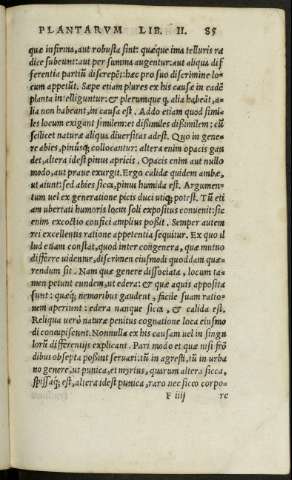 PLANTARVM LIB. II. 85
quæ infirma, aut robusta sint: quæque ima telluris ra
dice subeunt: aut per summa augentur: aut aliqua dif
ferentia partiũ discrepẽt: hæc pro suo discrimine lo=
cum appetũt. Sæpe etiam plures ex his causæ in eadẽ
planta intelliguntur: & plerumque alia habeãt, a=
lia non habeant, in causa est. Addo etiam quod simi=
les locum exigant similem: et dißimiles dißimilem: cũ
scilicet naturæ aliqua diuersitas adest. Quo in gene=
re abies, pinusq́; collocantur: altera enim opacis gau
det, altera idest pinus apricis. Opacis enim aut nullo
modo, aut praue exurgit. Ergo calidæ quidem ambæ,
ut aiunt: sed abies sicca, pinus humida est. Argumen=
tum uel ex generatione picis duci utiq; potest. Tũ eti
am ubertati humoris locus soli expositus conuenit: sic
enim excoctio confici amplius poßit. Semper autem
rei excellentis ratione appetentia sequitur. Ex quo il
lud etiam constat, quod inter congenera, quæ mutuo
differre uidentur, discrimen eiusmodi quoddam quæ=
rendum sit. Nam quæ genere dissociata, locum ta=
men petunt eundem, ut edera: & quæ aquis apposita
sunt: quæq́; nemoribus gaudent, facile suam ratio=
nem aperiunt: edera nanque sicca, & calida est.
Reliqua uero naturæ penitus cognatione loca eiusmo
di concupiscunt. Nonnulla ex his causam uel in singu
lorũ differentijs explicant. Pari modo et quæ nisi frõ
dibus obsepta poßunt seruari: tũ in agresti, tũ in urba
no genere, ut punica, et myrtus, quarum altera sicca,
spissaq́; est, altera idest punica, raro nec sicco corpo=
F iiij re